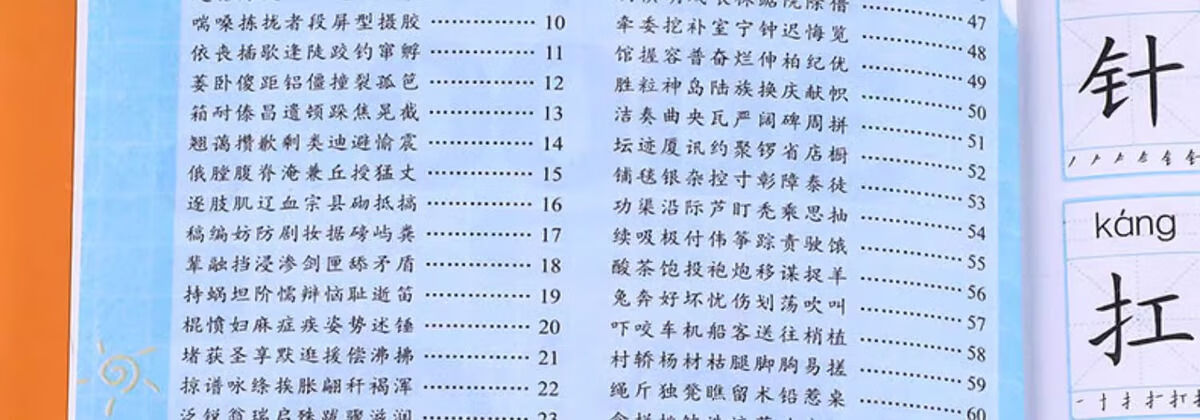 喘嗓拣拢者段屏型摄胶 ………… 10
依丧插歇逢陡跤钓窜孵 ………… 11
萎卧傻距铝僵撞裂孤笆 ………… 12
箱耐傣昌遗顿跺焦晃截 ………… 13
翘蔼攒歉剩类迪避愉震 ………… 14
俄膛腹脊淹兼丘授猛丈 ………… 15
逐肢肌辽血宗县砌抵搞 ………… 16
稿编妨防刷妆据磅屿粪 ………… 17
辈融挡浸渗剑匣舔矛盾 ………… 18
持蜗坦阶懦辩恼耻逝笛 ………… 19
棍惯妇麻症疾姿势述锤 ………… 20
堵荻圣享默逛援偿沸拂 ………… 21
掠谱咏绦挨胀翩秆褐浑 ………… 22
23
47
牵委挖补室宁钟迟悔览 ………… 48
馆握容普奋烂伸柏纪优 ………… 49
胜粒神岛陆族换庆献帜 ………… 50
洁奏曲央瓦严阔碑周拼 ………… 51
坛迹厦讯约聚锣省店橱 ………… 52
铺毯银杂控寸彰障泰徒 ………… 53
功渠沿际芦盯秃乘思抽 ………… 54
续吸极付伟筝踪责驶饿 ………… 55
酸茶饱投袍炮移谋捉羊 ………… 56
兔奔好坏忧伤划荡吹叫 ………… 57
吓咬车机船客送往梢植 ………… 58
村轿杨材枯腿脚胸易搓 ………… 59
绳斤独凳瞧留术铅惹桌 ………… 60
针
káng
扛